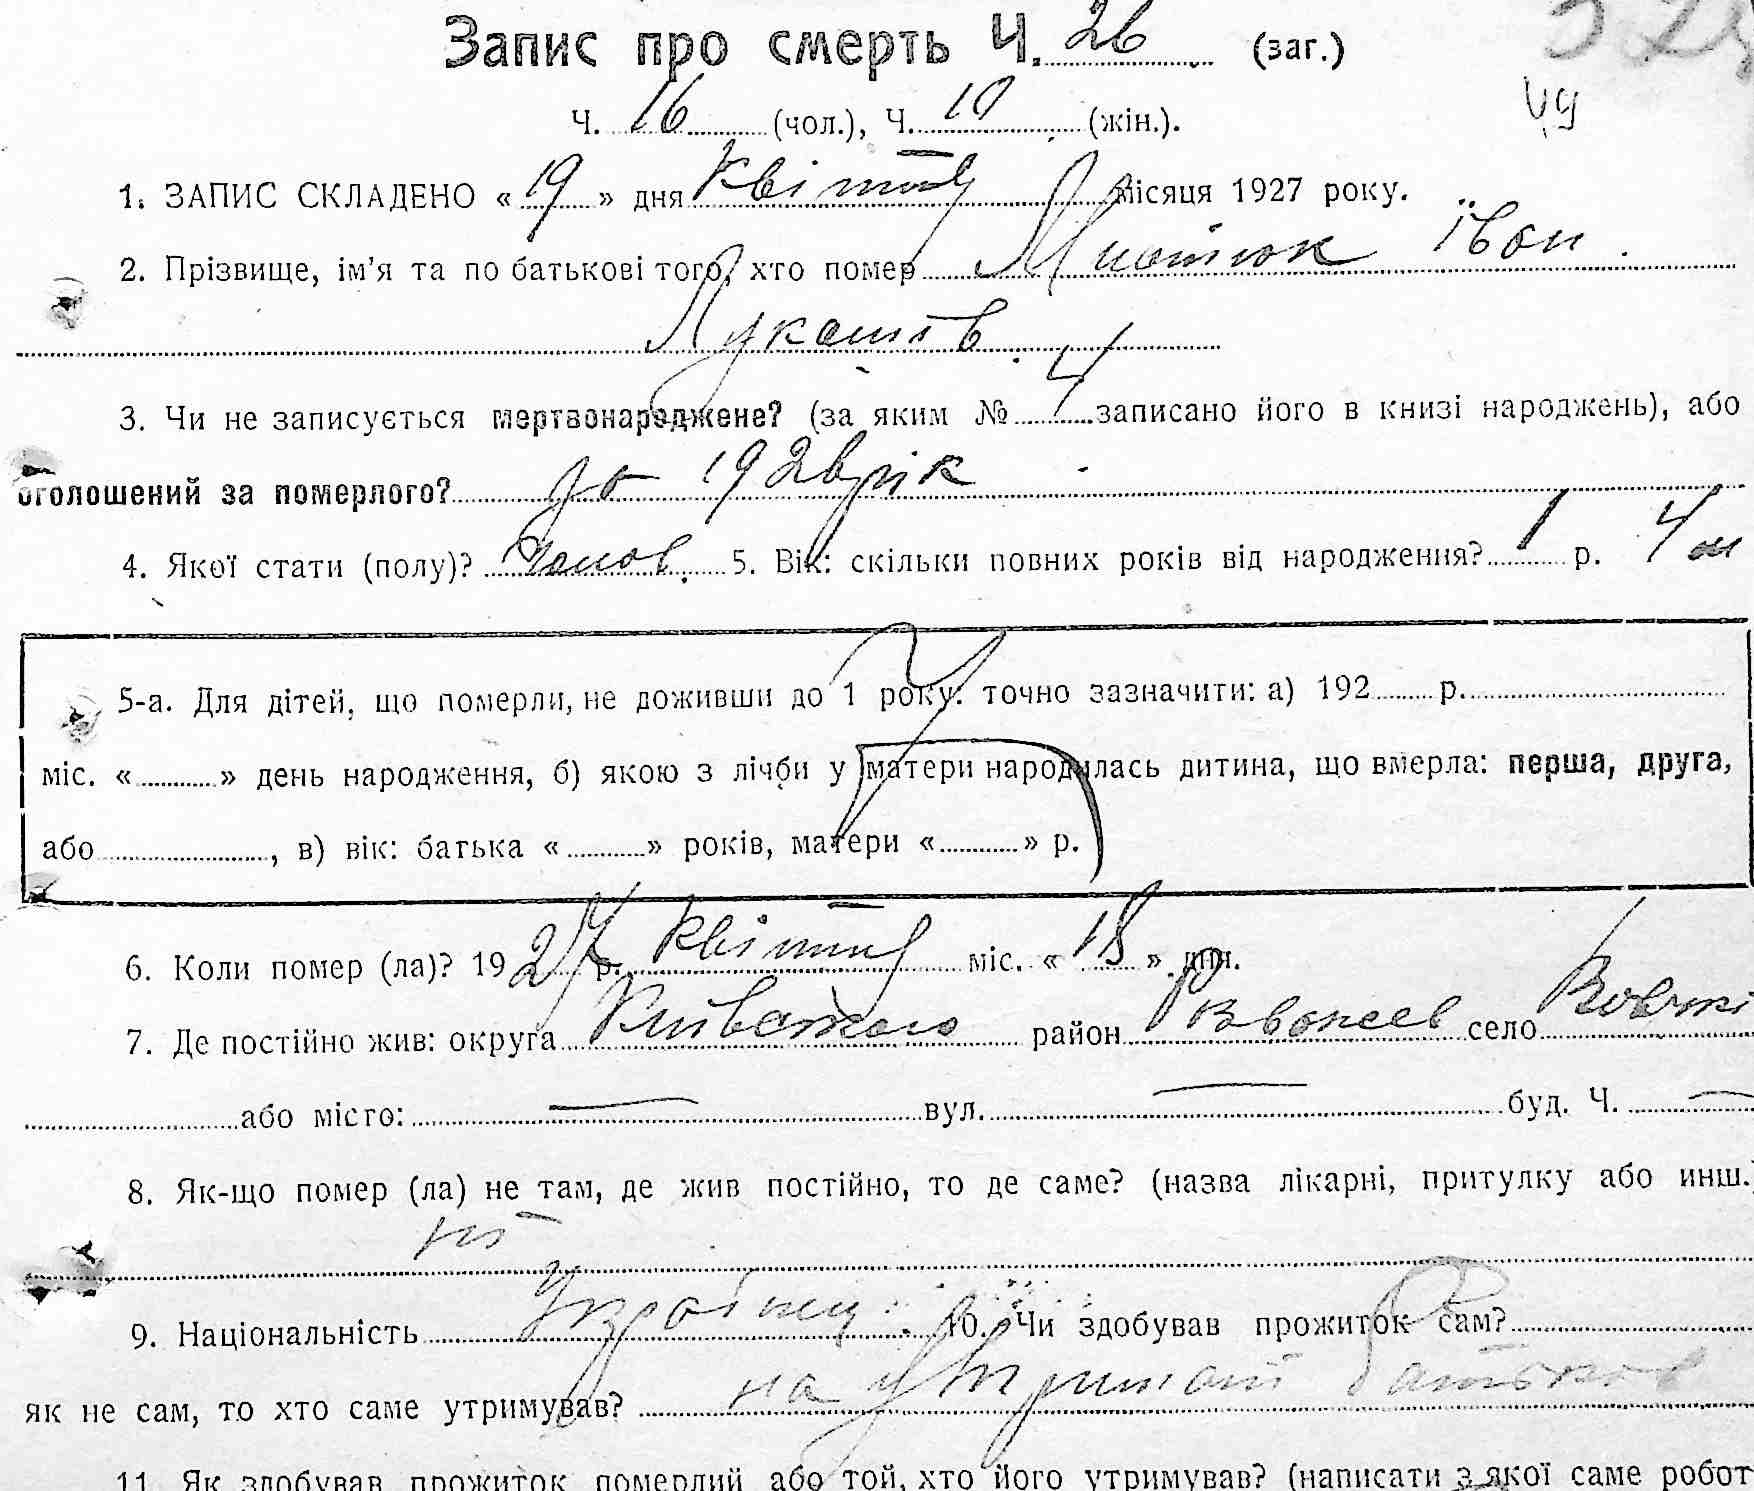 Запис про смерть Ч. 26 (заг.)
Ч. 16 (чол.), Ч. 10 (жін.).
1. ЗАПИС СКЛАДЕНО « 19 » дня квітня місяця 1927 року.
2. Прізвище, ім'я та по батькові того, хто помер Іван
3. Чи не записується мертвонароджене? (за яким № 4 записано його в книзі народжень), або
оголошений за померлого? 1926 рік
4. Якої стати (полу)? чолов. 5. Вік: скільки повних років від народження? 1 р. 4 м
5-а. Для дітей, що померли, не доживши до 1 року: точно зазначити: а) 192 р.
міс. « » день народження, б) якою з лічби у матери народилась дитина, що вмерла: перша, друга,
або , в) вік: батька « » років, матери « » р.
6. Коли помер (ла)? 1927 р. квітня міс. « 18 » дня.
7. Де постійно жив: округа район село
або місто: — вул. — буд. Ч. —
8. Як-що помер (ла) не там, де жив постійно, то де саме? (назва лікарні, притулку або инш.
9. Національність Українец 10. Чи здобував прожиток сам?
як не сам, то хто саме утримував? на утриманні батьков
11. Як здобував прожиток померлий або той, хто його утримував? (написати з якої саме робот